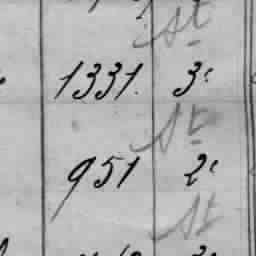 st
1331. 3.
st
951 2.
st